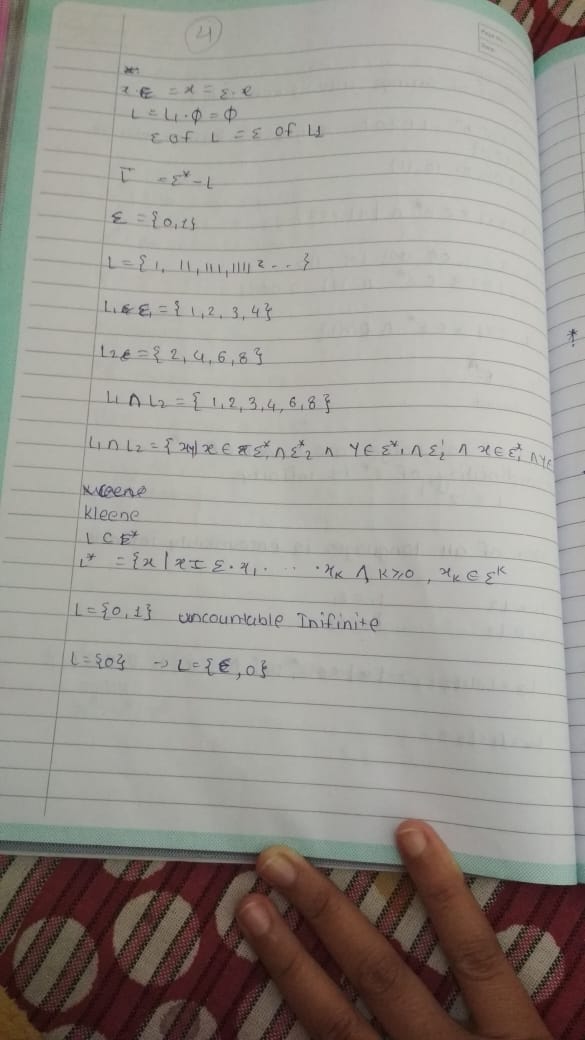 4
x.ε = x = ε.x
L = L1.Φ = Φ
Σ of L = Σ of L1
L̅ = Σ* - L
Σ = {0,1}
L = {1, 11, 111, 1111 ...}
= {1,2,3,4}
L2 = {2,4,6,8}
L1 ∩ L2 = {1,2,3,4,6,8}
L1 ∩ L2 = {xy | x ∈ Σ*1 ∩ Σ*2 ∧ Y ∈ Σ*1 ∩ Σ*2 ∧ x ∈ Σ*1 ∧ Y ∈
Kleene
L ⊂ Σ*
L* = {x | x = ε.x1. ... .xk ∧ k ≥ 0, xk ∈ Σk
L = {0,1} uncountable Inifinite
L = {0} → L = {ε,0}